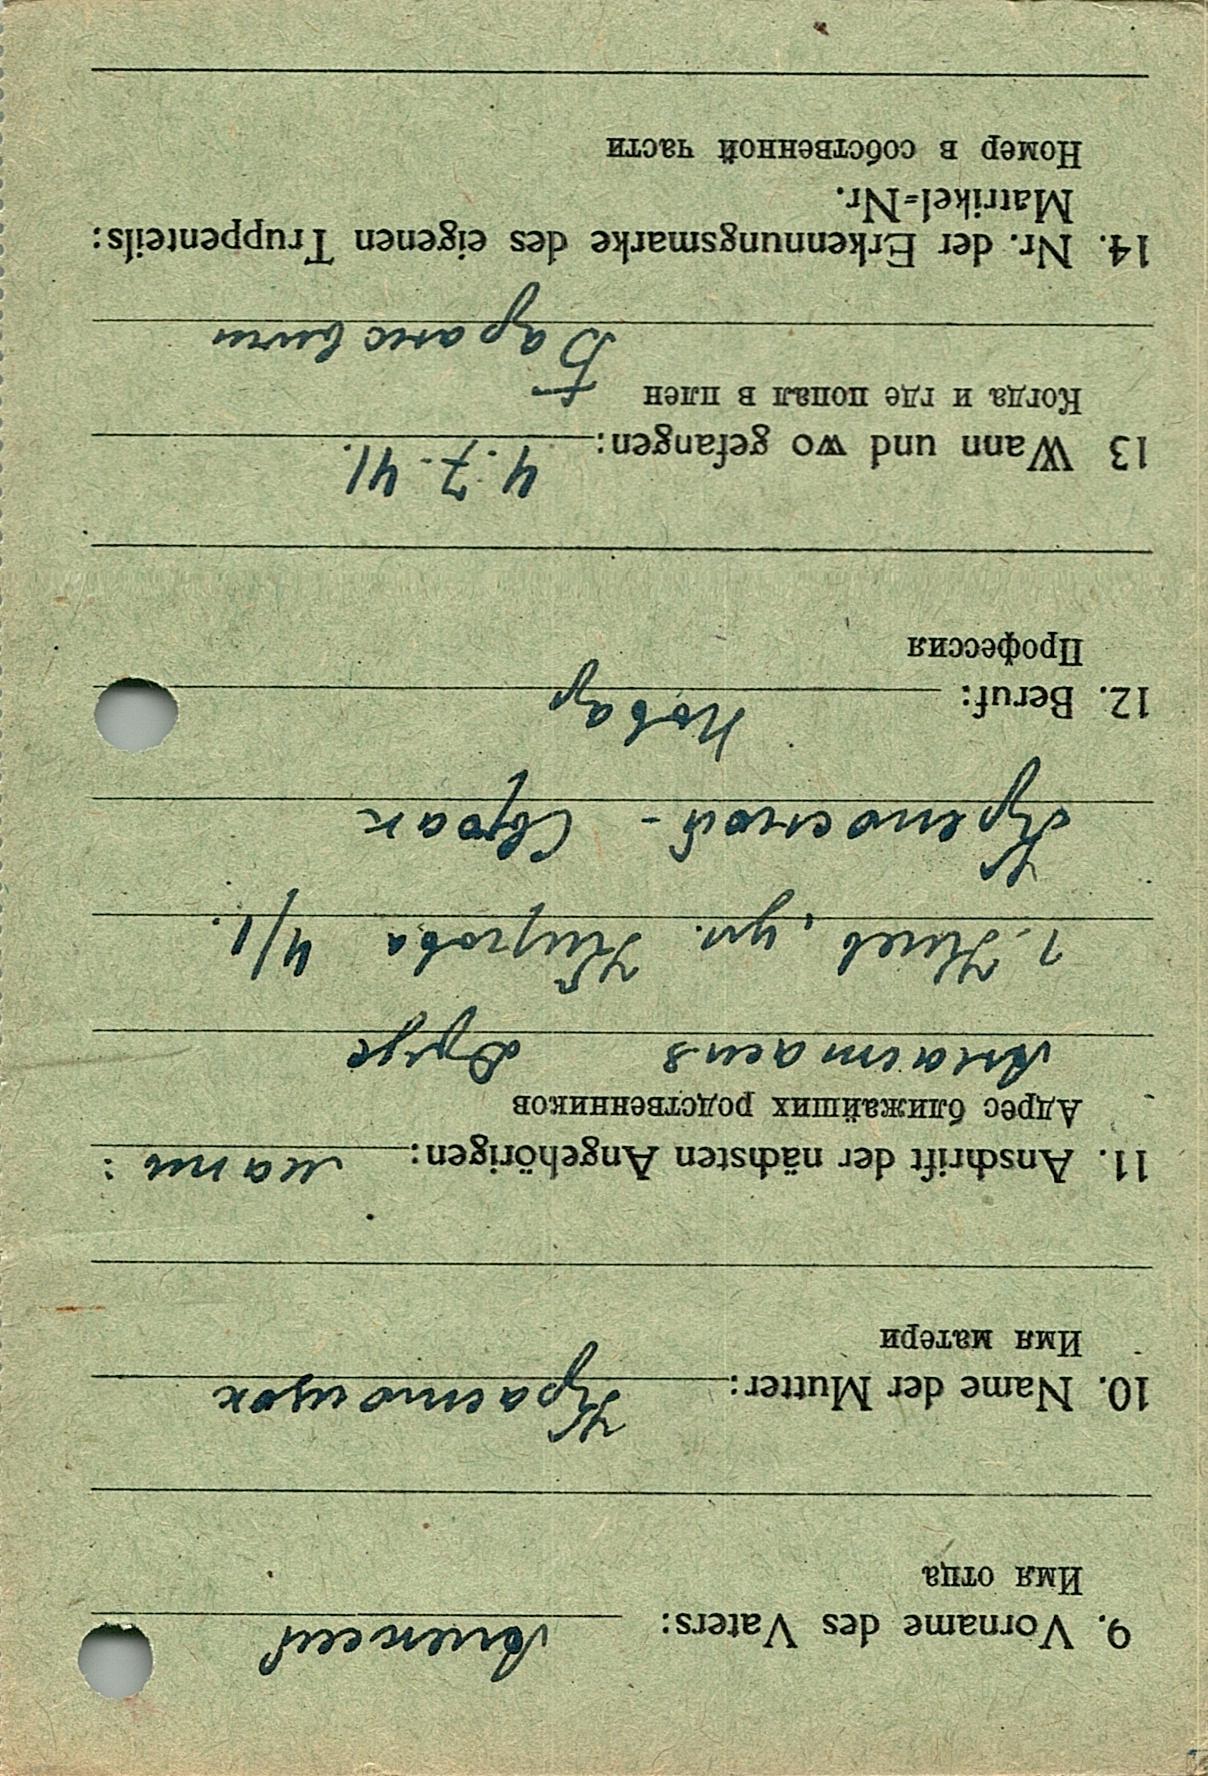 9. Vorname des Vaters: Алексей
Имя отца
10. Name der Mutter:
Имя матери
11. Anschrift der nächsten Angehörigen: мать:
Адрес ближайших родственников
Анастасия
г. Киев, ул. Кирова 4/1.
12. Beruf: повар
Профессия
13 Wann und wo gefangen: 4.7.41.
Когда и где попал в плен
Барановичи
14. Nr. der Erkennungsmarke des eigenen Truppenteils:
Matrikel=Nr.
Номер в собственной части